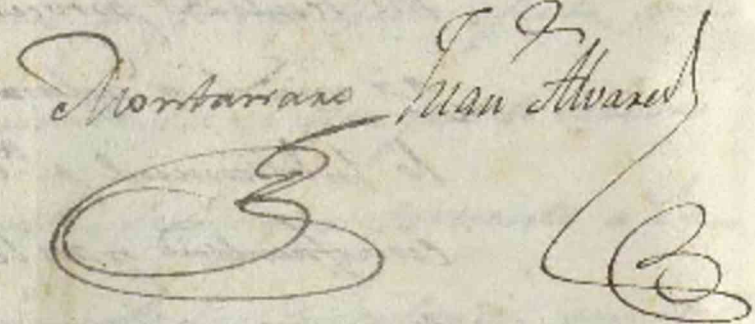 Montanaro Juan Alvarez